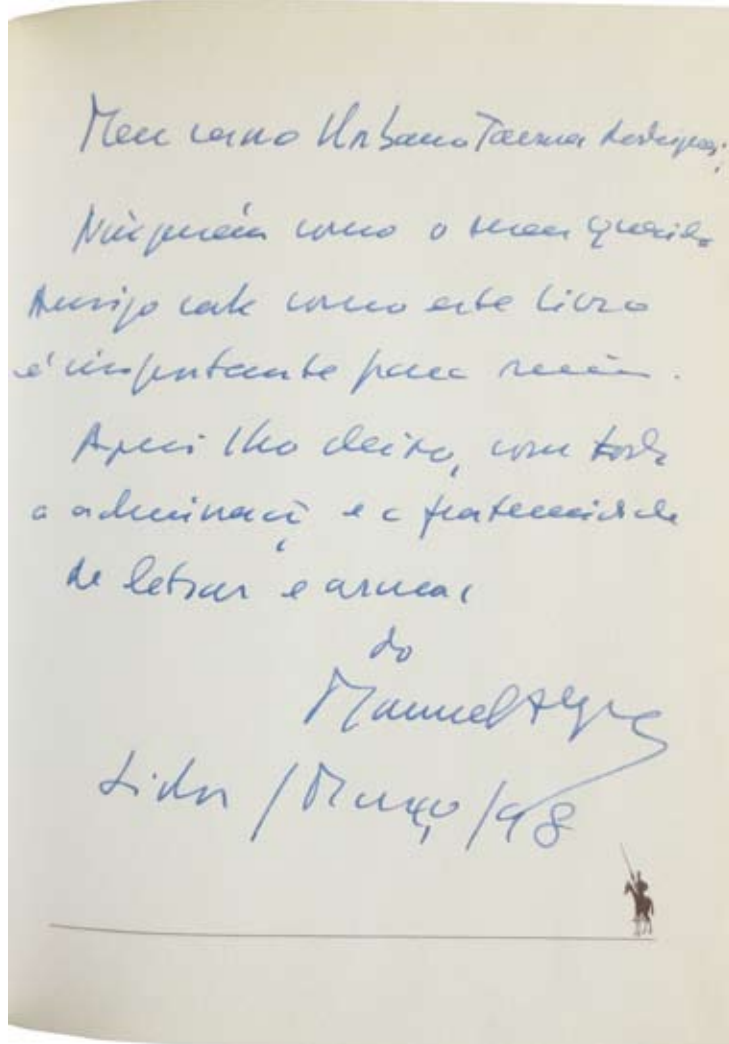 Meu caro Urbano Tavares Rodrigues:
Ninguém como o meu querido
Amigo sabe como este livro
é importante para mim.
Aqui lho deixo, com toda
a admiração e a fraternidade
de letras e armas
do
Manuel Alegre
Lisboa / Março / 98